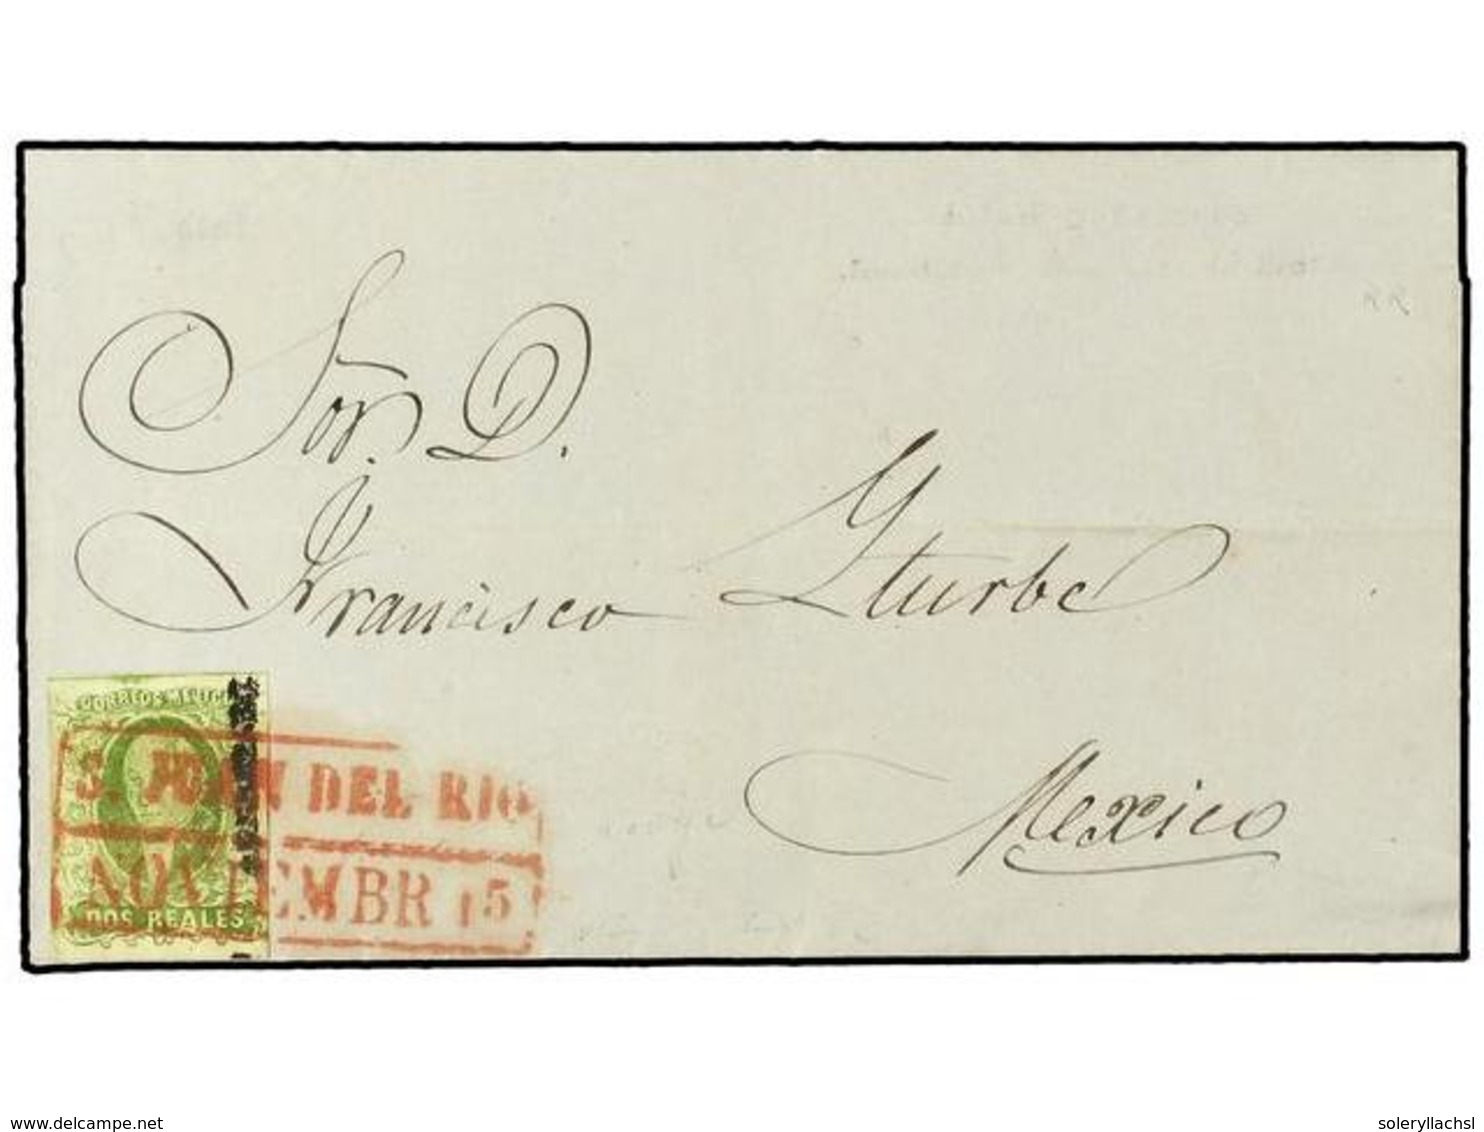 Sor. D.
Francisco Yturbe
Mexico
CORREOS MEJICO
S. JUAN DEL RIO
NOVIEMBR 15
DOS REALES
delcampe.net
soleryllachsl